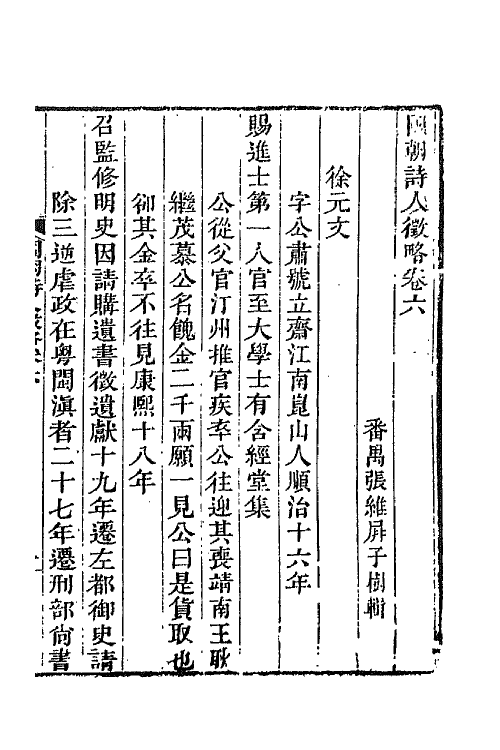 國朝詩人徵略卷六
番禺張維屛子樹輯
徐元文
字公肅號立齋江南崑山人順治十六年
賜進士第一人官至大學士有含經堂集
公從父官汀州推官疾卒公往迎其喪靖南王耿
繼茂慕公名餽金二千兩願一見公曰是貨取也
卻其金卒不往見康熙十八年
召監修明史因請購遺書徵遺獻十九年遷左都御史請
除三逆虐政在粵閩滇者二十七年遷刑部尙書